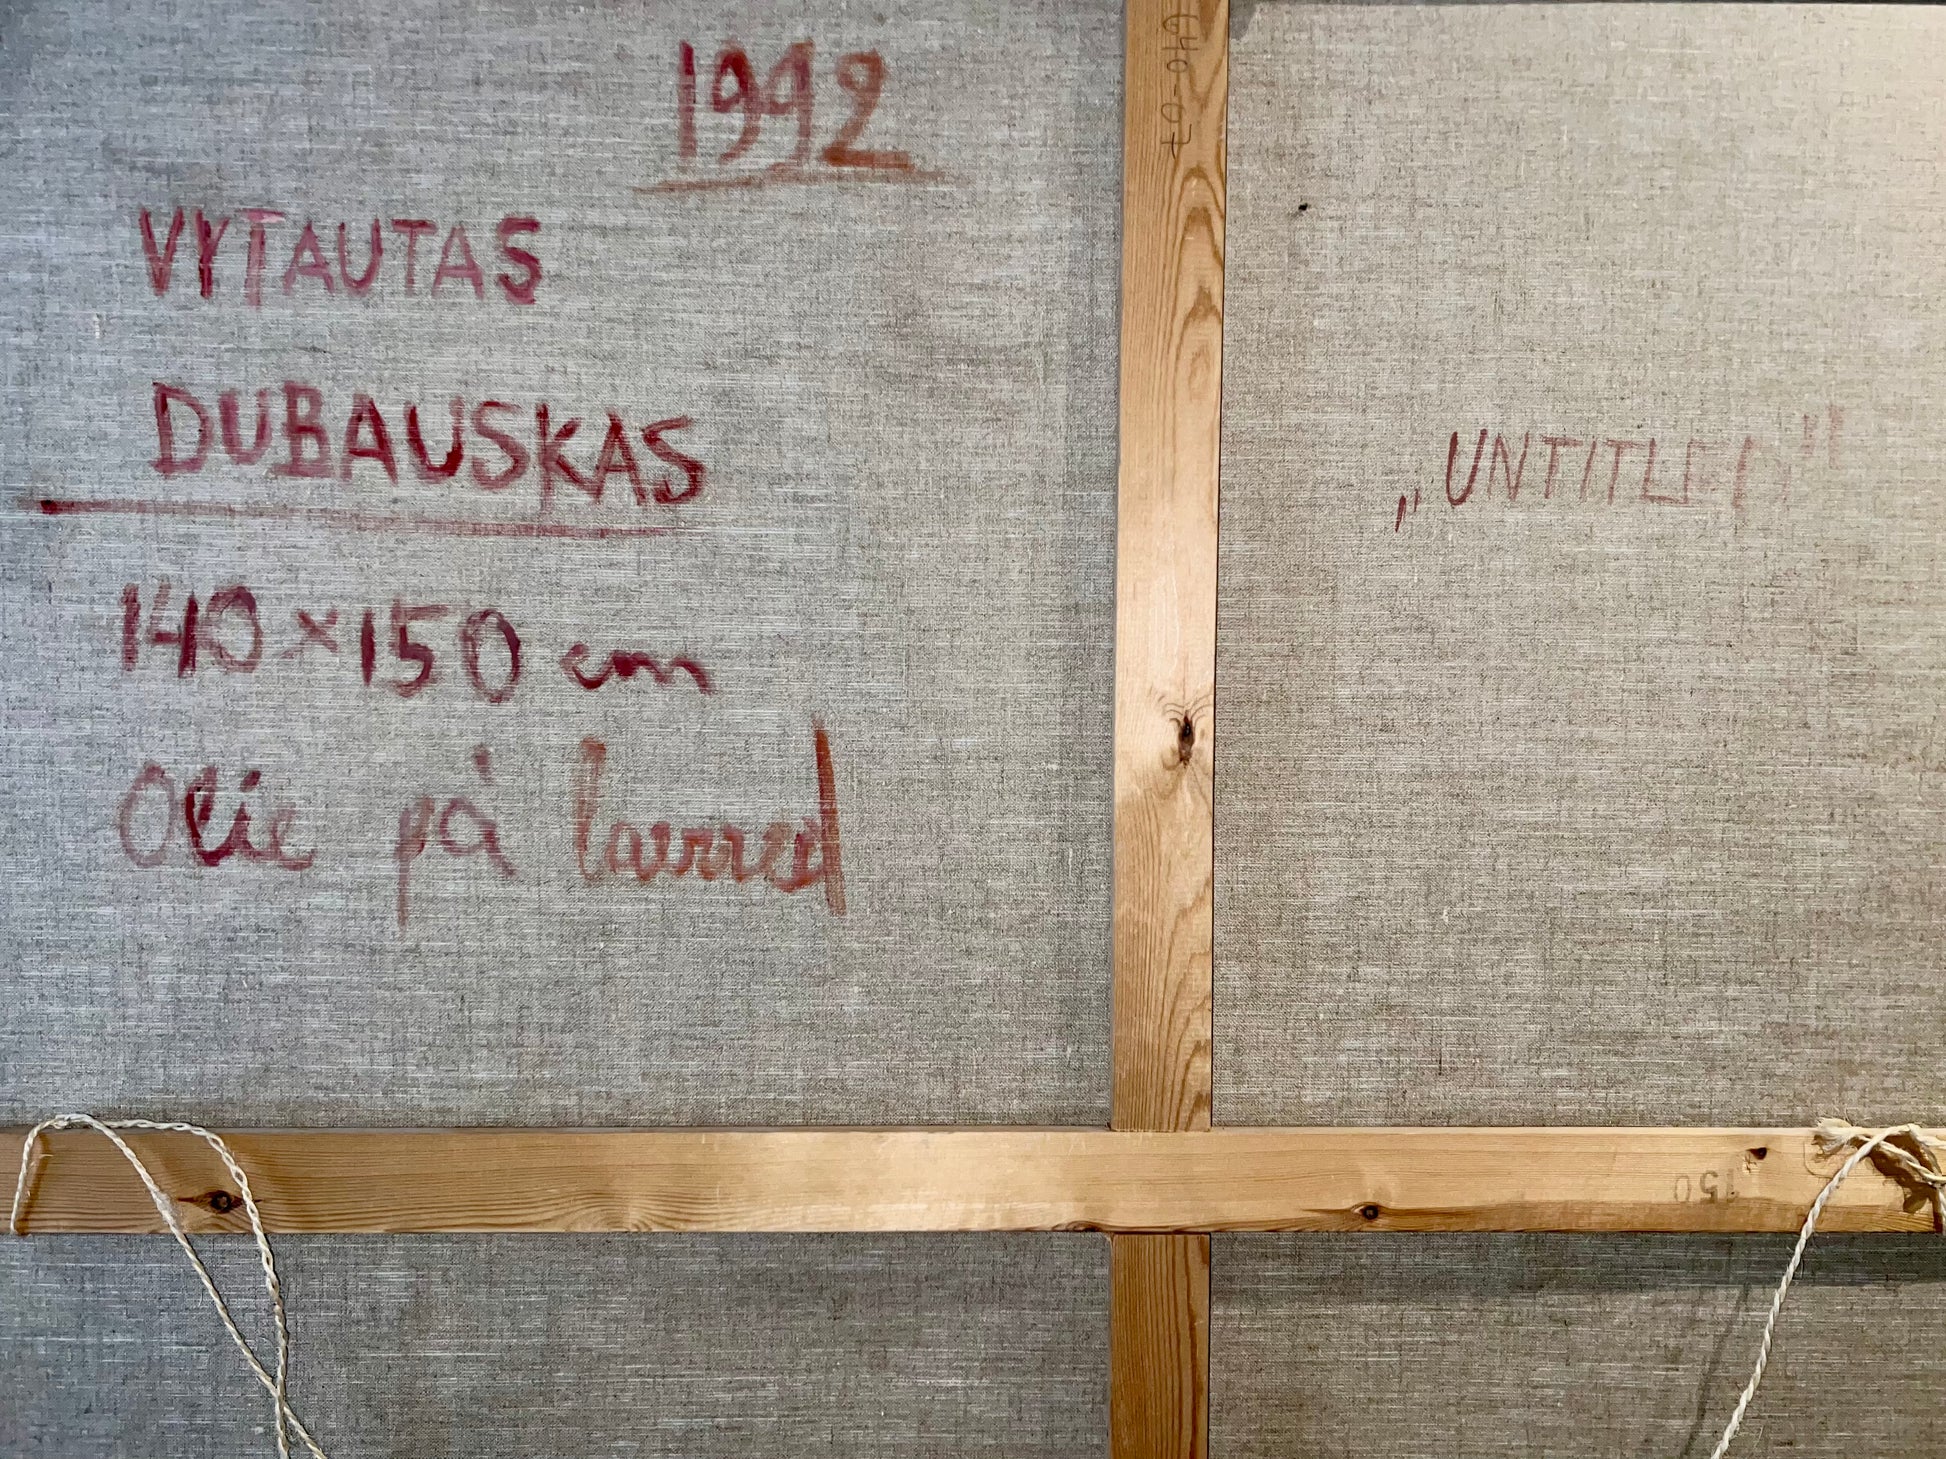 1992
VYTAUTAS
DUBAUSKAS
140 × 150 cm
Olie på lærred
„UNTITLED"
150